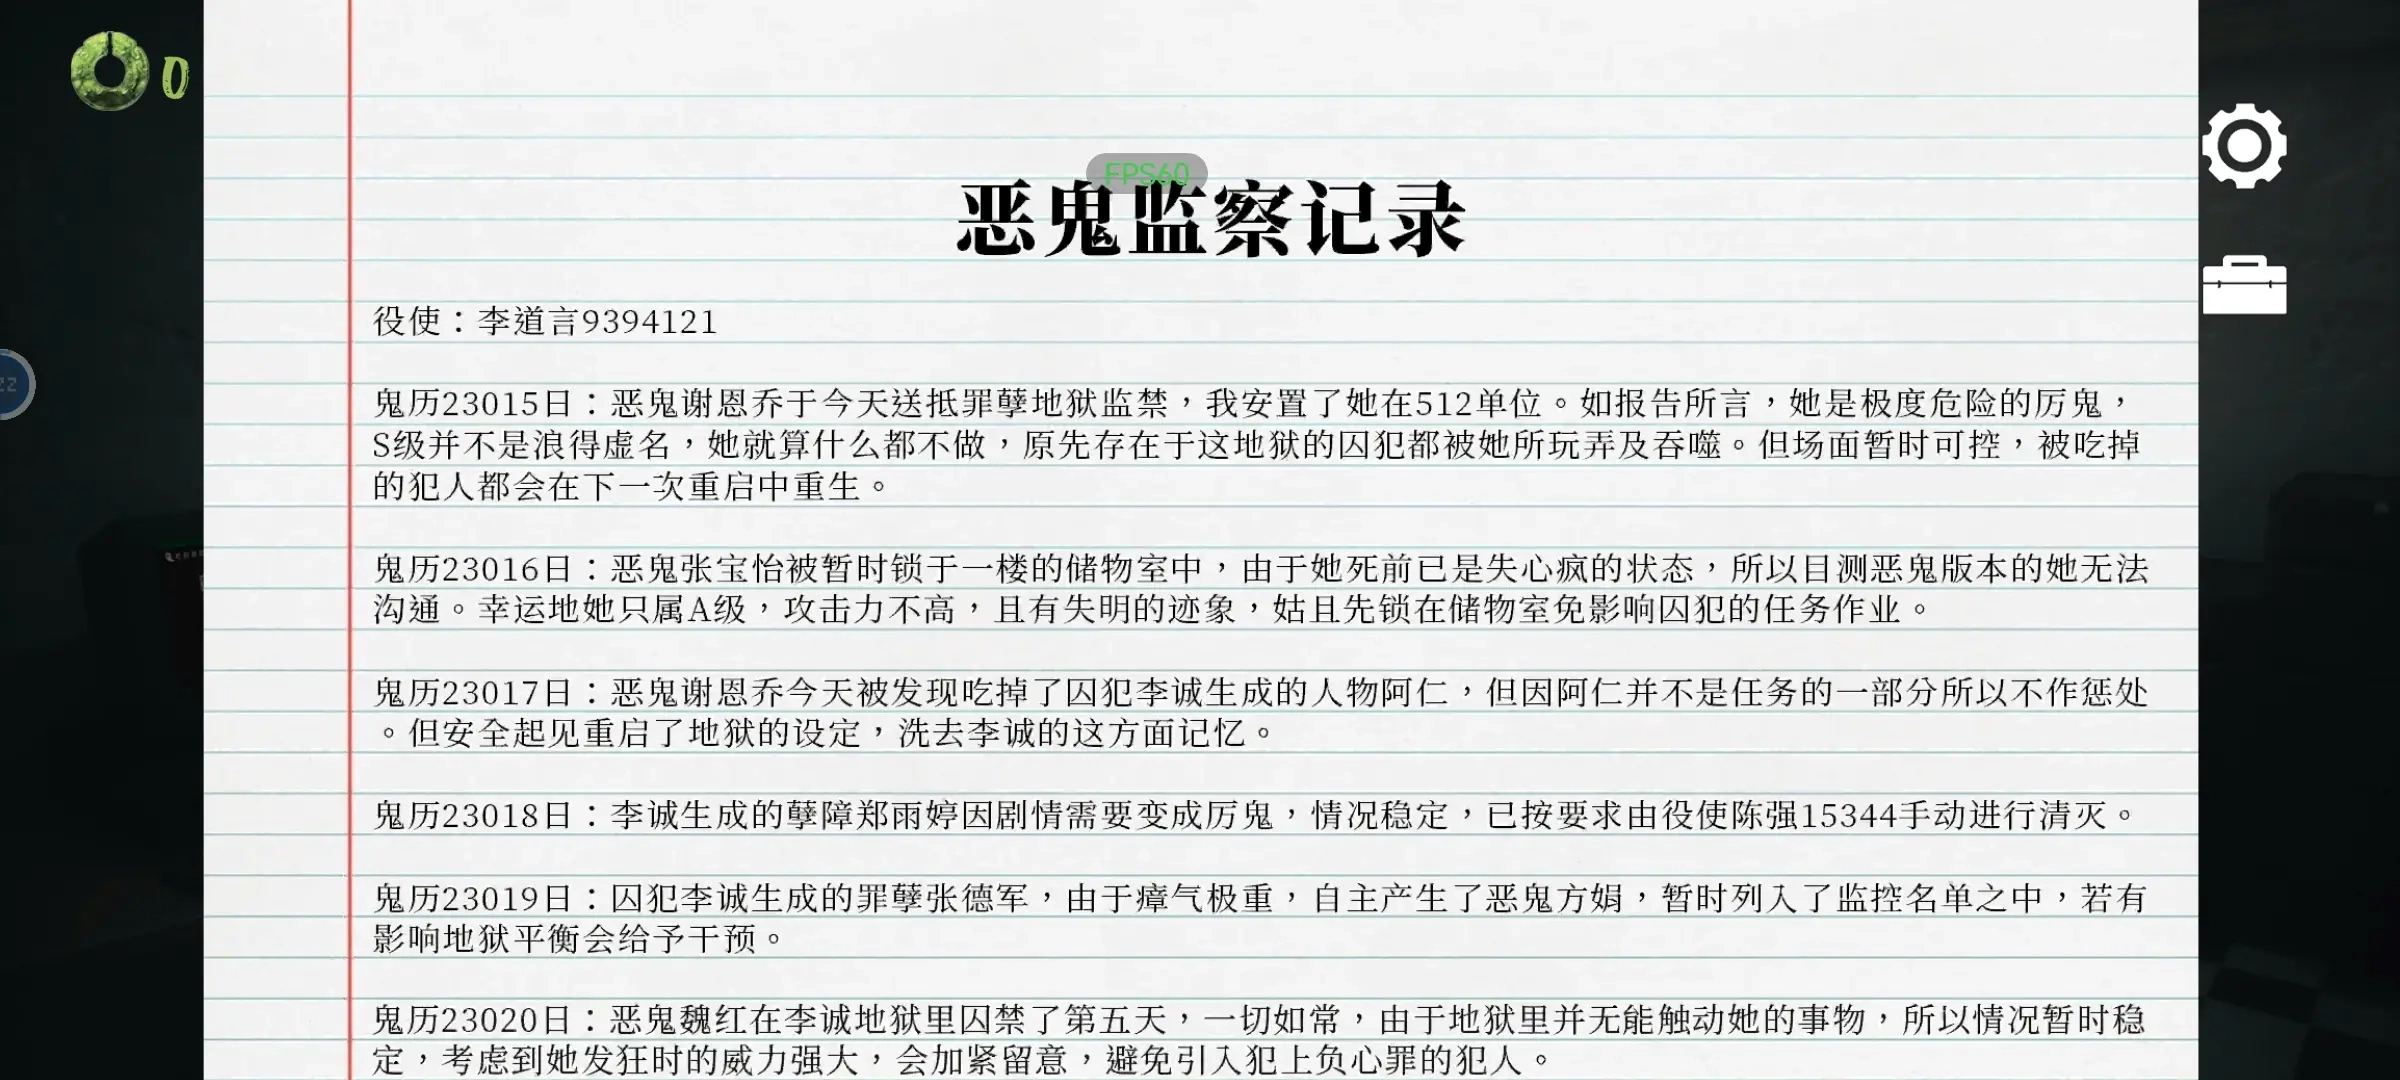 0
FPS60
恶鬼监察记录
役使：李道言9394121
22
鬼历23015日：恶鬼谢恩乔于今天送抵罪孽地狱监禁，我安置了她在512单位。如报告所言，她是极度危险的厉鬼，
S级并不是浪得虚名，她就算什么都不做，原先存在于这地狱的囚犯都被她所玩弄及吞噬。但场面暂时可控，被吃掉
的犯人都会在下一次重启中重生。
鬼历23016日：恶鬼张宝怡被暂时锁于一楼的储物室中，由于她死前已是失心疯的状态，所以目测恶鬼版本的她无法
沟通。幸运地她只属A级，攻击力不高，且有失明的迹象，姑且先锁在储物室免影响囚犯的任务作业。
鬼历23017日：恶鬼谢恩乔今天被发现吃掉了囚犯李诚生成的人物阿仁，但因阿仁并不是任务的一部分所以不作惩处
。但安全起见重启了地狱的设定，洗去李诚的这方面记忆。
鬼历23018日：李诚生成的孽障郑雨婷因剧情需要变成厉鬼，情况稳定，已按要求由役使陈强15344手动进行清灭。
鬼历23019日：囚犯李诚生成的罪孽张德军，由于瘴气极重，自主产生了恶鬼方娟，暂时列入了监控名单之中，若有
影响地狱平衡会给予干预。
鬼历23020日：恶鬼魏红在李诚地狱里囚禁了第五天，一切如常，由于地狱里并无能触动她的事物，所以情况暂时稳
定，考虑到她发狂时的威力强大，会加紧留意，避免引入犯上负心罪的犯人。